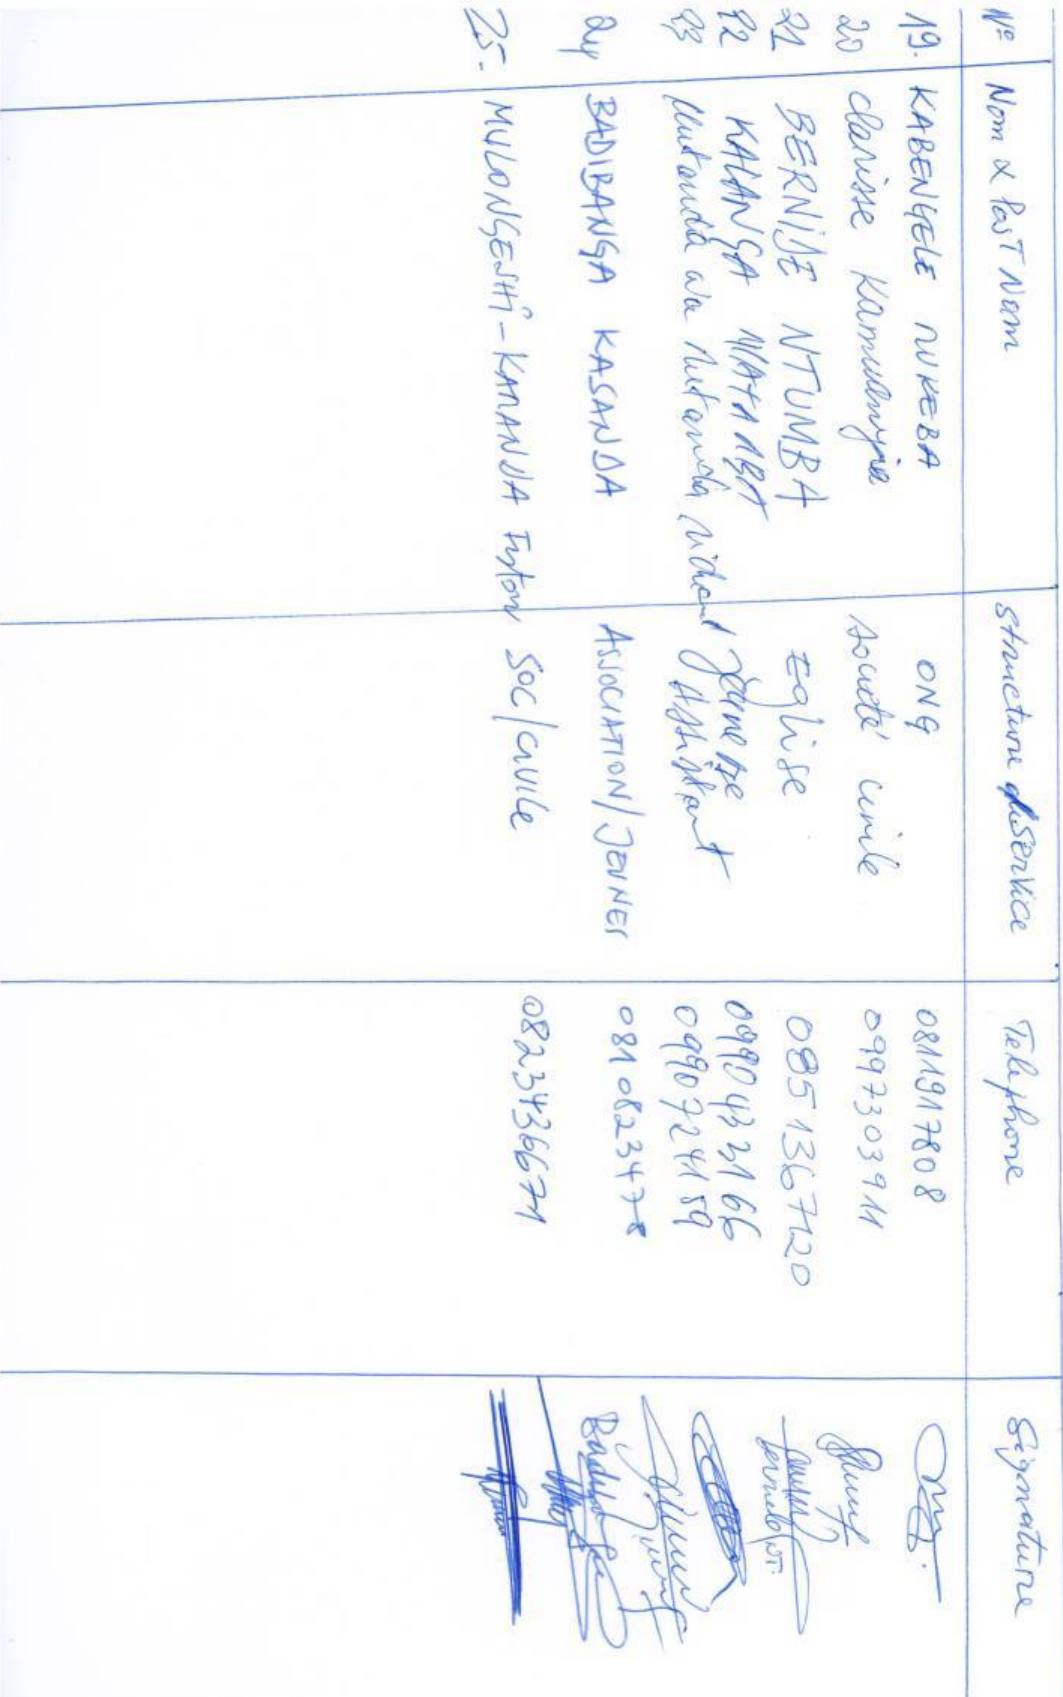 N° Nom & Post Nom Structure ou Service Telephone Signature
19. KABENGELE MUKEBA ONG 0811917808
20 Clarisse Kamulenyia société civile 0997303911
21 BERNIDE NTUMBA Eglise 0851367120
22 KALANGA 0990433166
23 Mutanda wa Mutanda Assistant 0990724159
24 BADIBANGA KASANDA ASSOCIATION/JEUNES 0810823478
25. MULONGESHI-KAMANDA SOC/CIVILE 0823436671